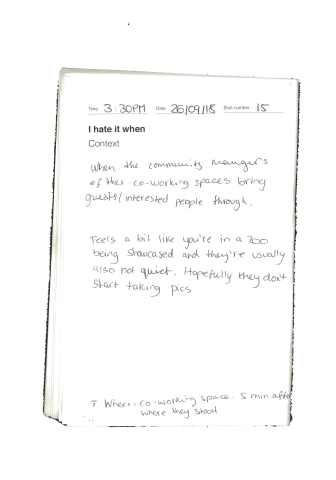 Time 3:30PM Date 26/09/18 Shot number 15
I hate it when
Context
When the community manager's
of the co-working spaces bring
guests/interested people through.
Feels a bit like you're in a zoo
being showcased and they're usually
also not quiet. Hopefully they don't
start taking pics
Where: co-working space. 5 min after
where they stood